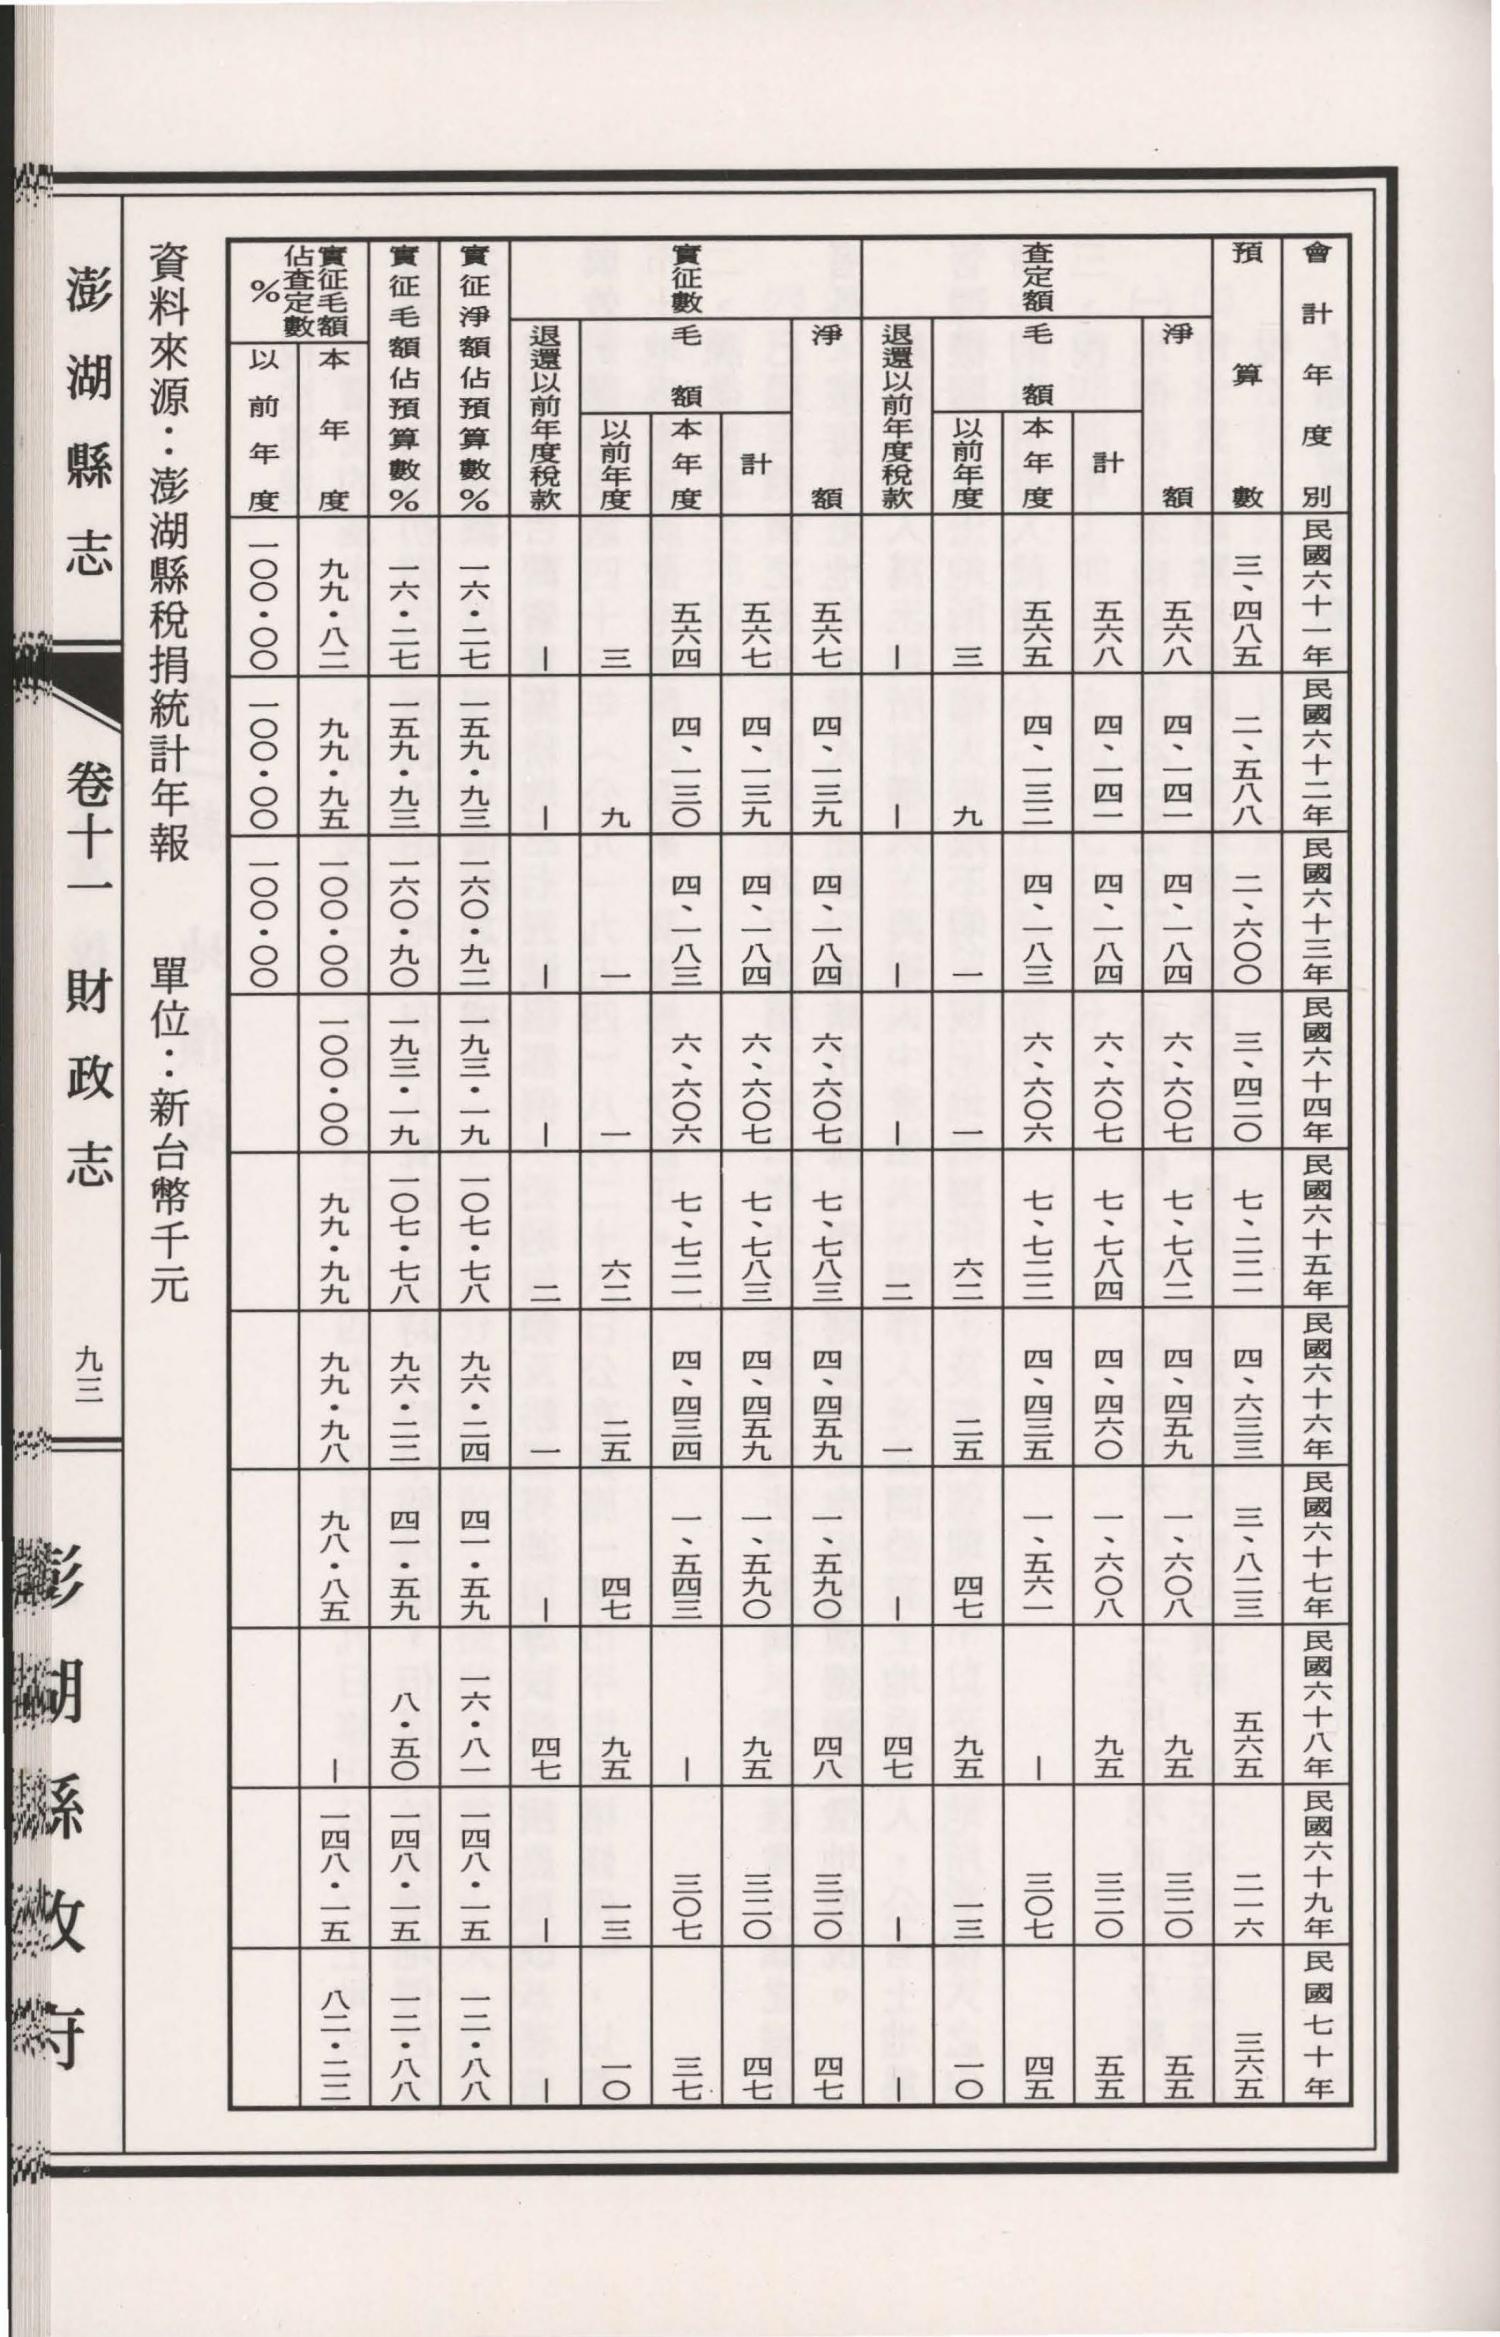 會計年度別 民國六十一年 民國六十二年 民國六十三年 民國六十四年 民國六十五年 民國六十六年 民國六十七年 民國六十八年 民國六十九年 民國七十年
預算數 三、四八五 二、五八八 二、六〇〇 三、四二〇 七、二二一 四、六三三 三、八二三 五六五 二一六 三六五
查定額
淨額 五六八 四、一四一 四、一八四 六、六〇七 七、七八二 四、四五九 一、六〇八 九五 三二〇 五五
毛額
計 五六八 四、一四一 四、一八四 六、六〇七 七、七八四 四、四六〇 一、六〇八 九五 三二〇 五五
本年度 五六五 四、一三二 四、一八三 六、六〇六 七、七二二 四、四三五 一、五六一 — 三〇七 四五
以前年度 三 九 一 一 六二 二五 四七 九五 一三 一〇
退還以前年度稅款 — — — — 二 一 — 四七 — —
實征數
淨額 五六七 四、一三九 四、一八四 六、六〇七 七、七八三 四、四五九 一、五九〇 四八 三二〇 四七
毛額
計 五六七 四、一三九 四、一八四 六、六〇七 七、七八三 四、四五九 一、五九〇 九五 三二〇 四七
本年度 五六四 四、一三〇 四、一八三 六、六〇六 七、七二一 四、四三四 一、五四三 — 三〇七 三七
以前年度 三 九 一 一 六二 二五 四七 九五 一三 一〇
退還以前年度稅款 — — — — 二 一 — 四七 — —
實征淨額佔預算數% 一六·二七 一五九·九三 一六〇·九二 一九三·一九 一〇七·七八 九六·二四 四一·五九 一六·八一 一四八·一五 一二·八八
實征毛額佔預算數% 一六·二七 一五九·九三 一六〇·九〇 一九三·一九 一〇七·七八 九六·二二 四一·五九 八·五〇 一四八·一五 一二·八八
實征毛額
佔查定數
%
本年度 九九·八二 九九·九五 一〇〇·〇〇 一〇〇·〇〇 九九·九九 九九·九八 九八·八五 — 一四八·一五 八二·二二
以前年度 一〇〇·〇〇 一〇〇·〇〇 一〇〇·〇〇
資料來源：澎湖縣稅捐統計年報 單位：新台幣千元
澎湖縣志 卷十一 財政志 九三 澎湖縣政府